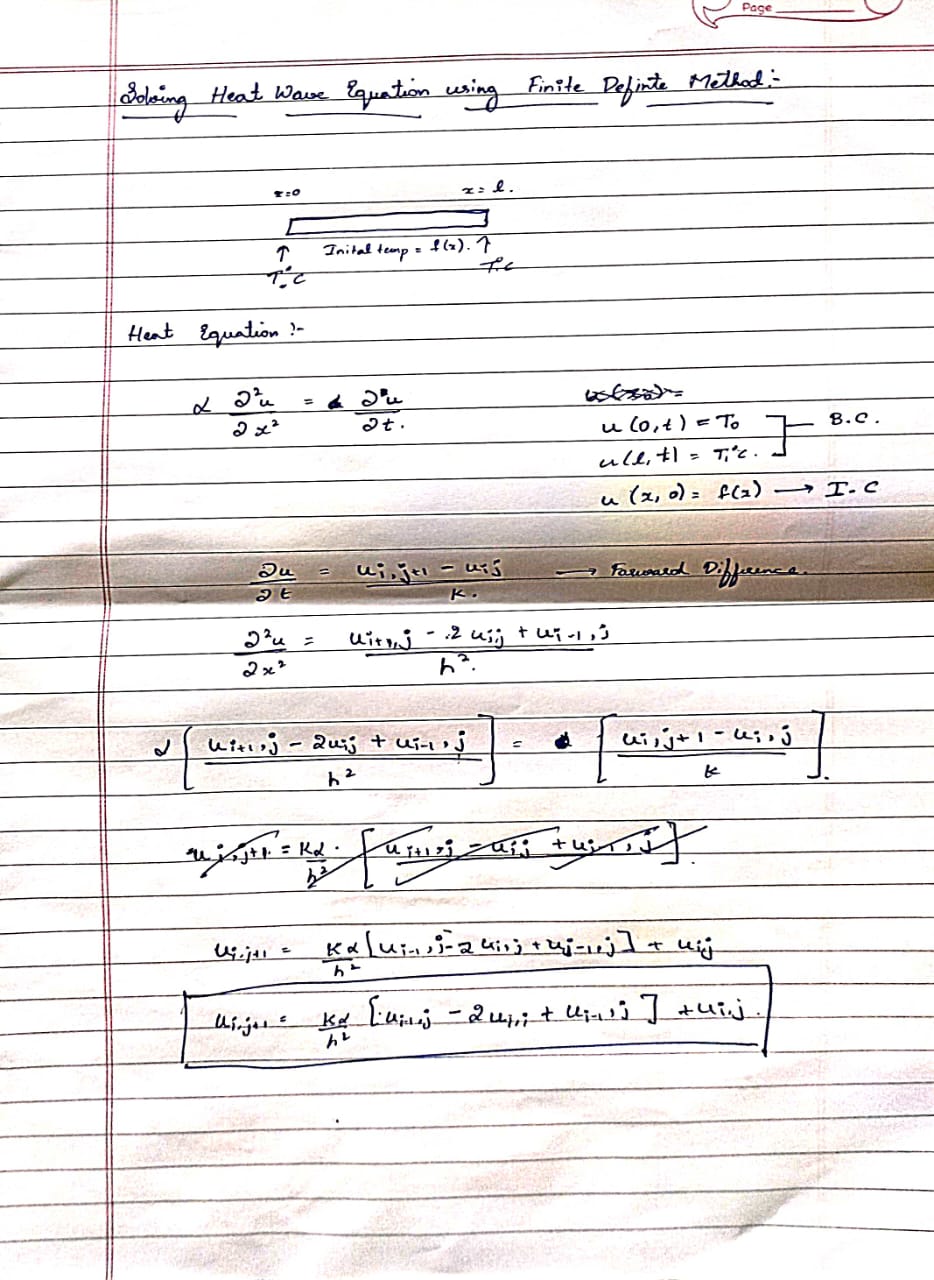 Page
Solving Heat Wave Equation using Finite Definte Method:-
x=0 x=l.
↑ Inital temp = f(x). ↑
T₀°C T₁°C
Heat Equation :-
α ∂²u/∂x² = ∂u/∂t.
u(0,t) = T₀
u(l,t) = T₁°C. B.C.
u(x,0) = f(x) → I.C
∂u/∂t = (uᵢ,ⱼ₊₁ - uᵢⱼ)/K. → Forward Difference.
∂²u/∂x² = (uᵢ₊₁,ⱼ - 2uᵢⱼ + uᵢ₋₁,ⱼ)/h².
α [(uᵢ₊₁,ⱼ - 2uᵢⱼ + uᵢ₋₁,ⱼ)/h²] = [(uᵢ,ⱼ₊₁ - uᵢ,ⱼ)/k].
uᵢ,ⱼ₊₁ = Kα/h² · [uᵢ₊₁,ⱼ - uᵢⱼ + uᵢ₋₁,ⱼ].
uᵢ,ⱼ₊₁ = Kα/h² [uᵢ₋₁,ⱼ - 2uᵢ,ⱼ + uᵢ₋₁,ⱼ] + uᵢⱼ
uᵢ,ⱼ₊₁ = Kα/h² [uᵢ₋₁,ⱼ - 2uᵢ,ⱼ + uᵢ₋₁,ⱼ] + uᵢ,ⱼ.